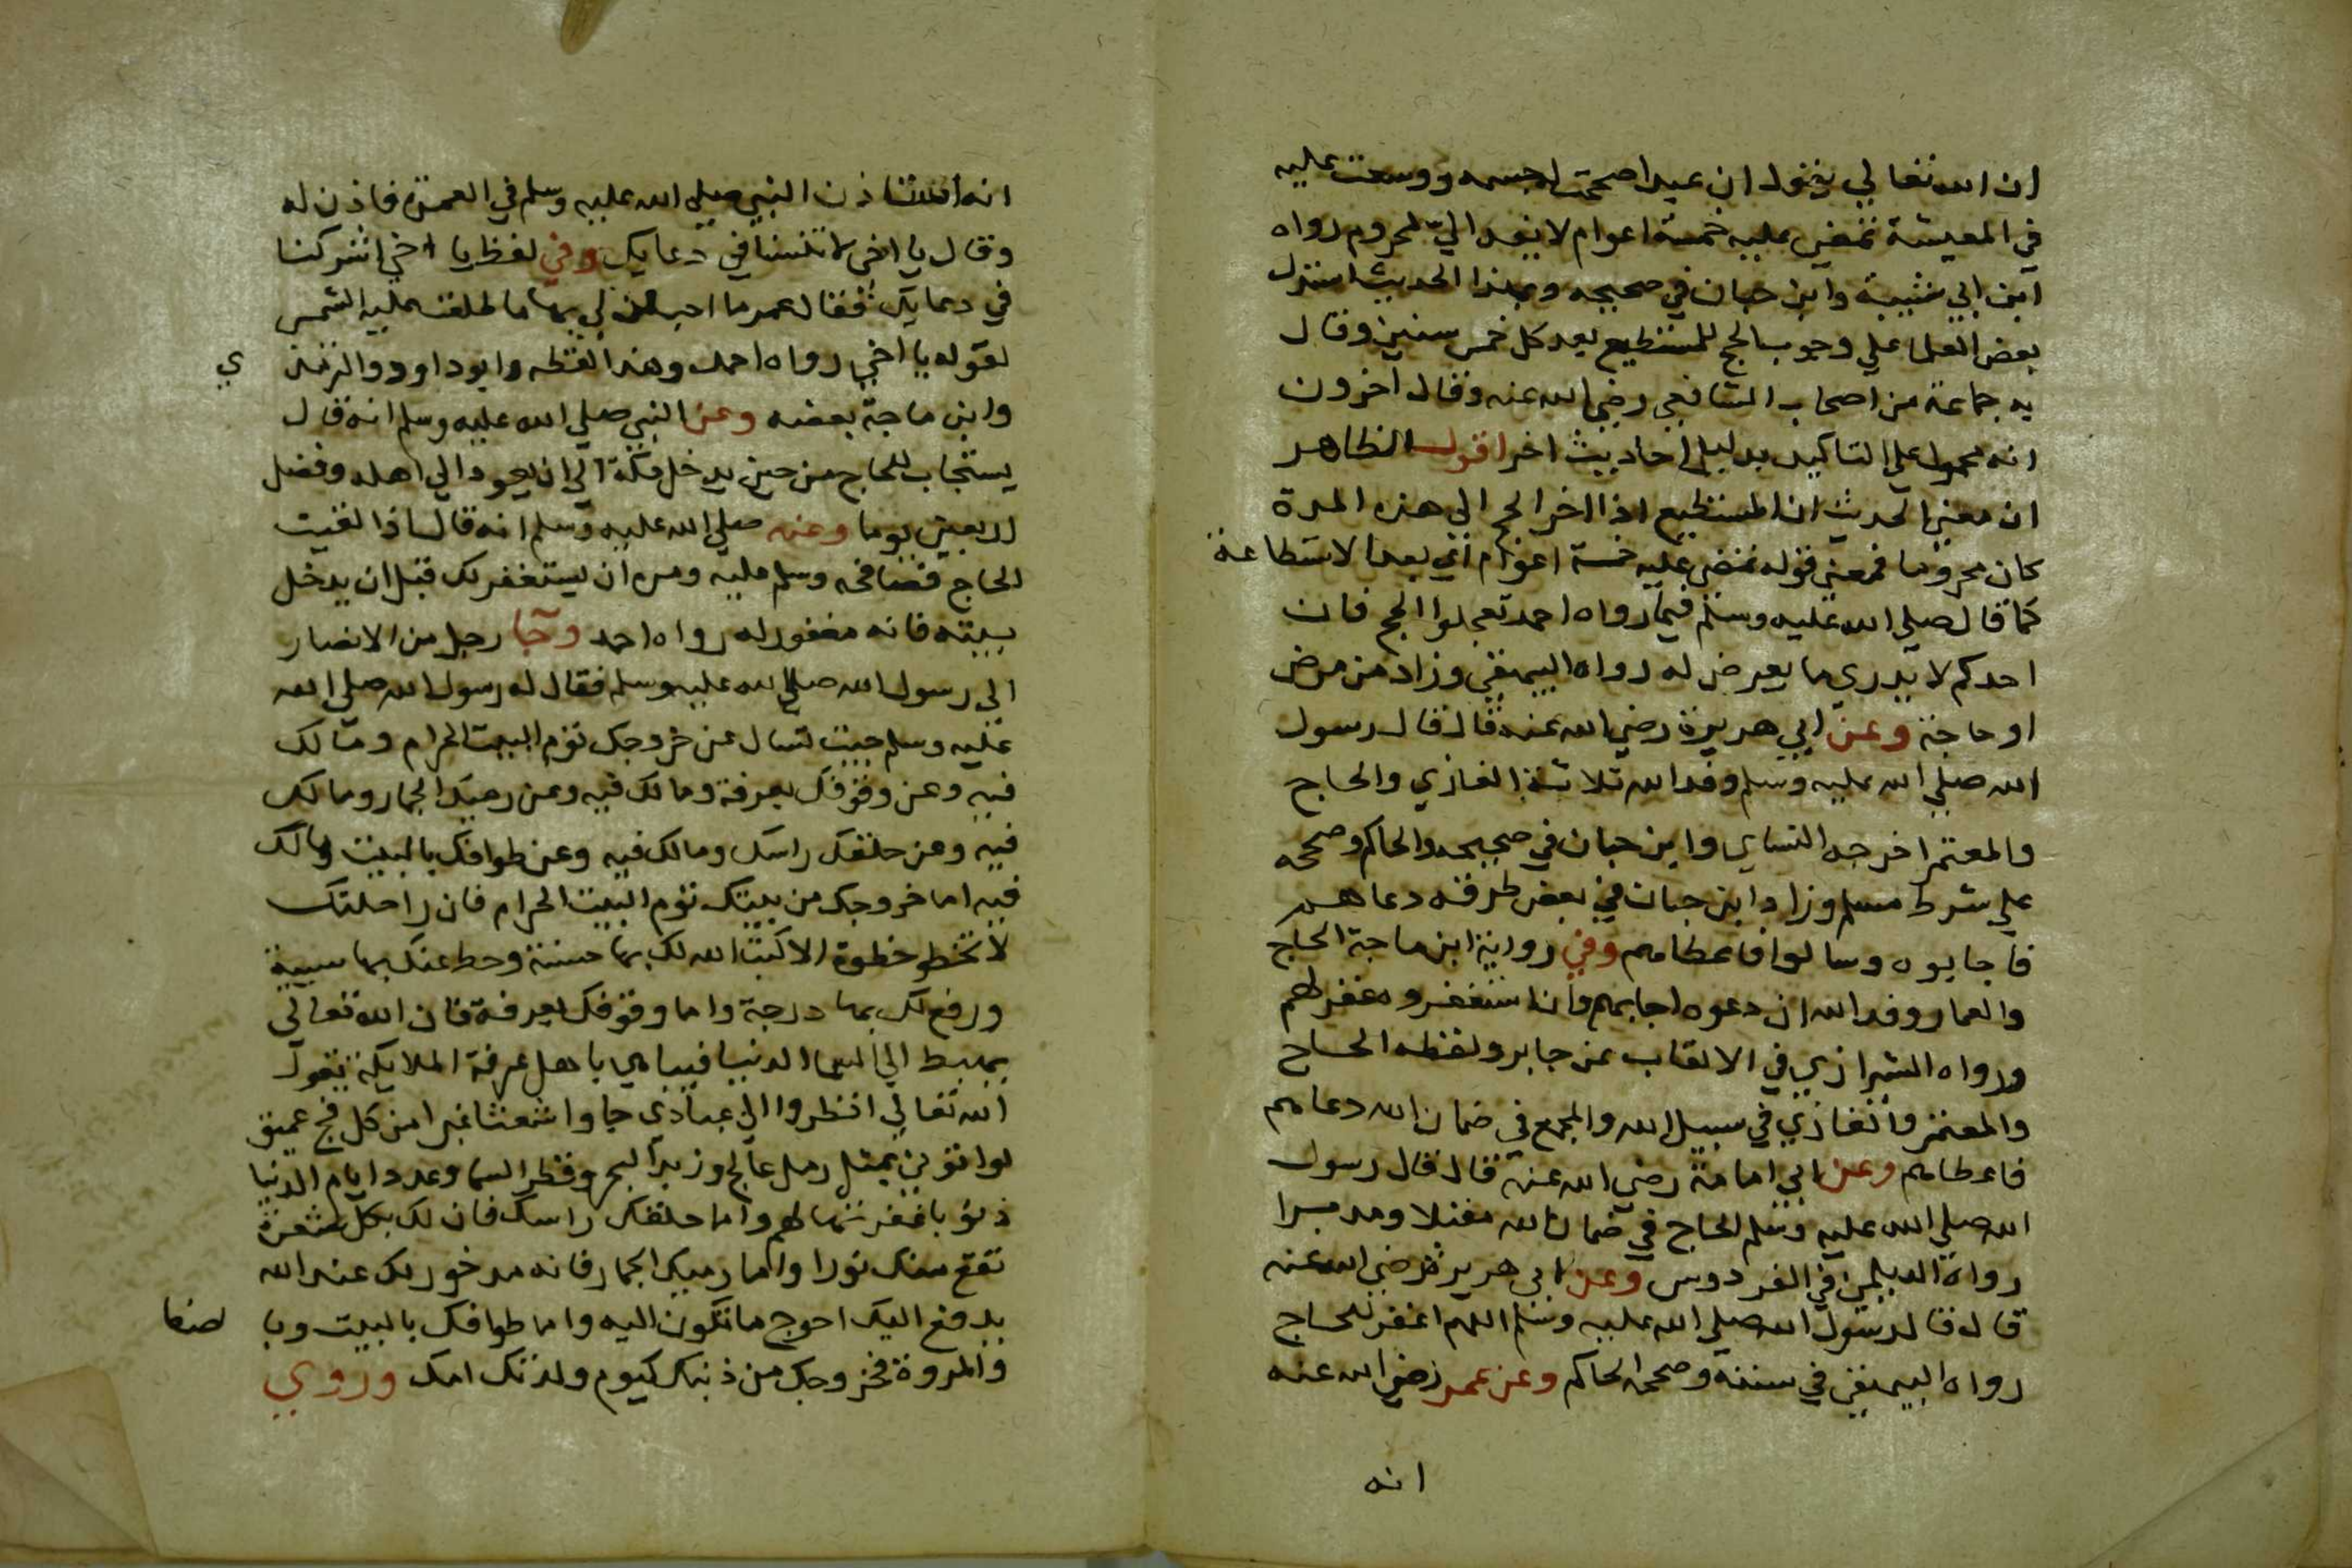 ان الله تعالي يقول ان عبدا صححت له جسمه ووسعت عليه
في المعيشة تمضي عليه خمسة اعوام لا يفد الي لمحروم رواه
ابن ابي شيبة وابن حبان في صحيحه وبهذا الحديث استدل
بعض العلما علي وجوب الحج للمستطيع بعد كل خمس سنين وقال
به جماعة من اصحاب الشافعي رضي الله عنه وقال اخرون
انه محمول علي التاكيد بدليل احاديث اخر اقول الظاهر
ان معني الحديث ان المستطيع اذا اخر الحج الي هذه المدة
كان محروما فمعني قوله تمضي عليه خمسة اعوام اي بعد الاستطاعة
كما قال صلي الله عليه وسلم فيما رواه احمد تعجلوا الحج فان
احدكم لا يدري ما يعرض له رواه البيهقي وزاد من مرض
او حاجة وعن ابي هريرة رضي الله عنه قال قال رسول
الله صلي الله عليه وسلم وفد الله ثلاثة الغازي والحاج
والمعتمر اخرجه النساي وابن حبان في صحيحه والحاكم وصححه
علي شرط مسلم وزاد ابن حبان في بعض طرقه دعاهم
فاجابوه وسالوا فاعطاهم وفي رواية ابن ماجة الحاج
والعمار وفد الله ان دعوه اجابهم وان استغفروه غفر لهم
ورواه الشيرازي في الالقاب عن جابر ولفظه الحاج
والمعتمر والغازي في سبيل الله والمجمع في ضمان الله دعاهم
فاعطاهم وعن ابي امامة رضي الله عنه قال قال رسول
الله صلي الله عليه وسلم الحاج في ضمان الله مقبلا ومدبرا
رواه الديلمي في الفردوس وعن ابي هريرة رضي الله عنه
قال قال رسول الله صلي الله عليه وسلم اللهم اغفر للحاج
رواه البيهقي في سننه وصححه الحاكم وعن عمر رضي الله عنه
انه
انه استاذن النبي صلي الله عليه وسلم في العمرة فاذن له
وقال يا اخي لا تنسنا في دعايك وفي لفظ يا اخي اشركنا
في دعايك فقال عمر ما احب ان لي بها ما طلعت عليه الشمس
لقوله يا اخي رواه احمد وهذا لفظه وابو داود والترمذ ي
وابن ماجة بعضه وعن النبي صلي الله عليه وسلم انه قال
يستجاب للحاج من حين يدخل مكة الي ان يعود الي اهله وفضل
اربعين يوما وعنه صلي الله عليه وسلم انه قال اذا لقيت
الحاج فصافحه وسلم عليه ومره ان يستغفر لك قبل ان يدخل
بيته فانه مغفور له رواه احمد وجا رجل من الانصار
الي رسول الله صلي الله عليه وسلم فقال له رسول الله صلي الله
عليه وسلم جيت تسال عن خروجك تؤم البيت الحرام ومالك
فيه وعن وقوفك بعرفة ومالك فيه وعن رميك الجمار ومالك
فيه وعن حلقك راسك ومالك فيه وعن طوافك بالبيت ومالك
فيه اما خروجك من بيتك تؤم البيت الحرام فان راحلتك
لا تخطو خطوة الا كتب الله لك بها حسنة وحط عنك بها سيية
ورفع لك بها درجة واما وقوفك بعرفة فان الله تعالي
يهبط الي السما الدنيا فيباهي باهل عرفة الملايكة يقول
الله تعالي انظروا الي عبادي جاوا شعثا غبرا من كل فج عميق
لو اتوني بمثل رمل عالج وزبد البحر وقطر السما وعدد ايام الدنيا
ذنوبا غفرتها لهم واما حلقك راسك فان لك بكل شعرة
تقع منك نورا واما رميك الجمار فانه مدخور لك عند الله
يدفع اليك احوج ما تكون اليه واما طوافك بالبيت وبا لصفا
والمروة فخروجك من ذنبك كيوم ولدتك امك وروي